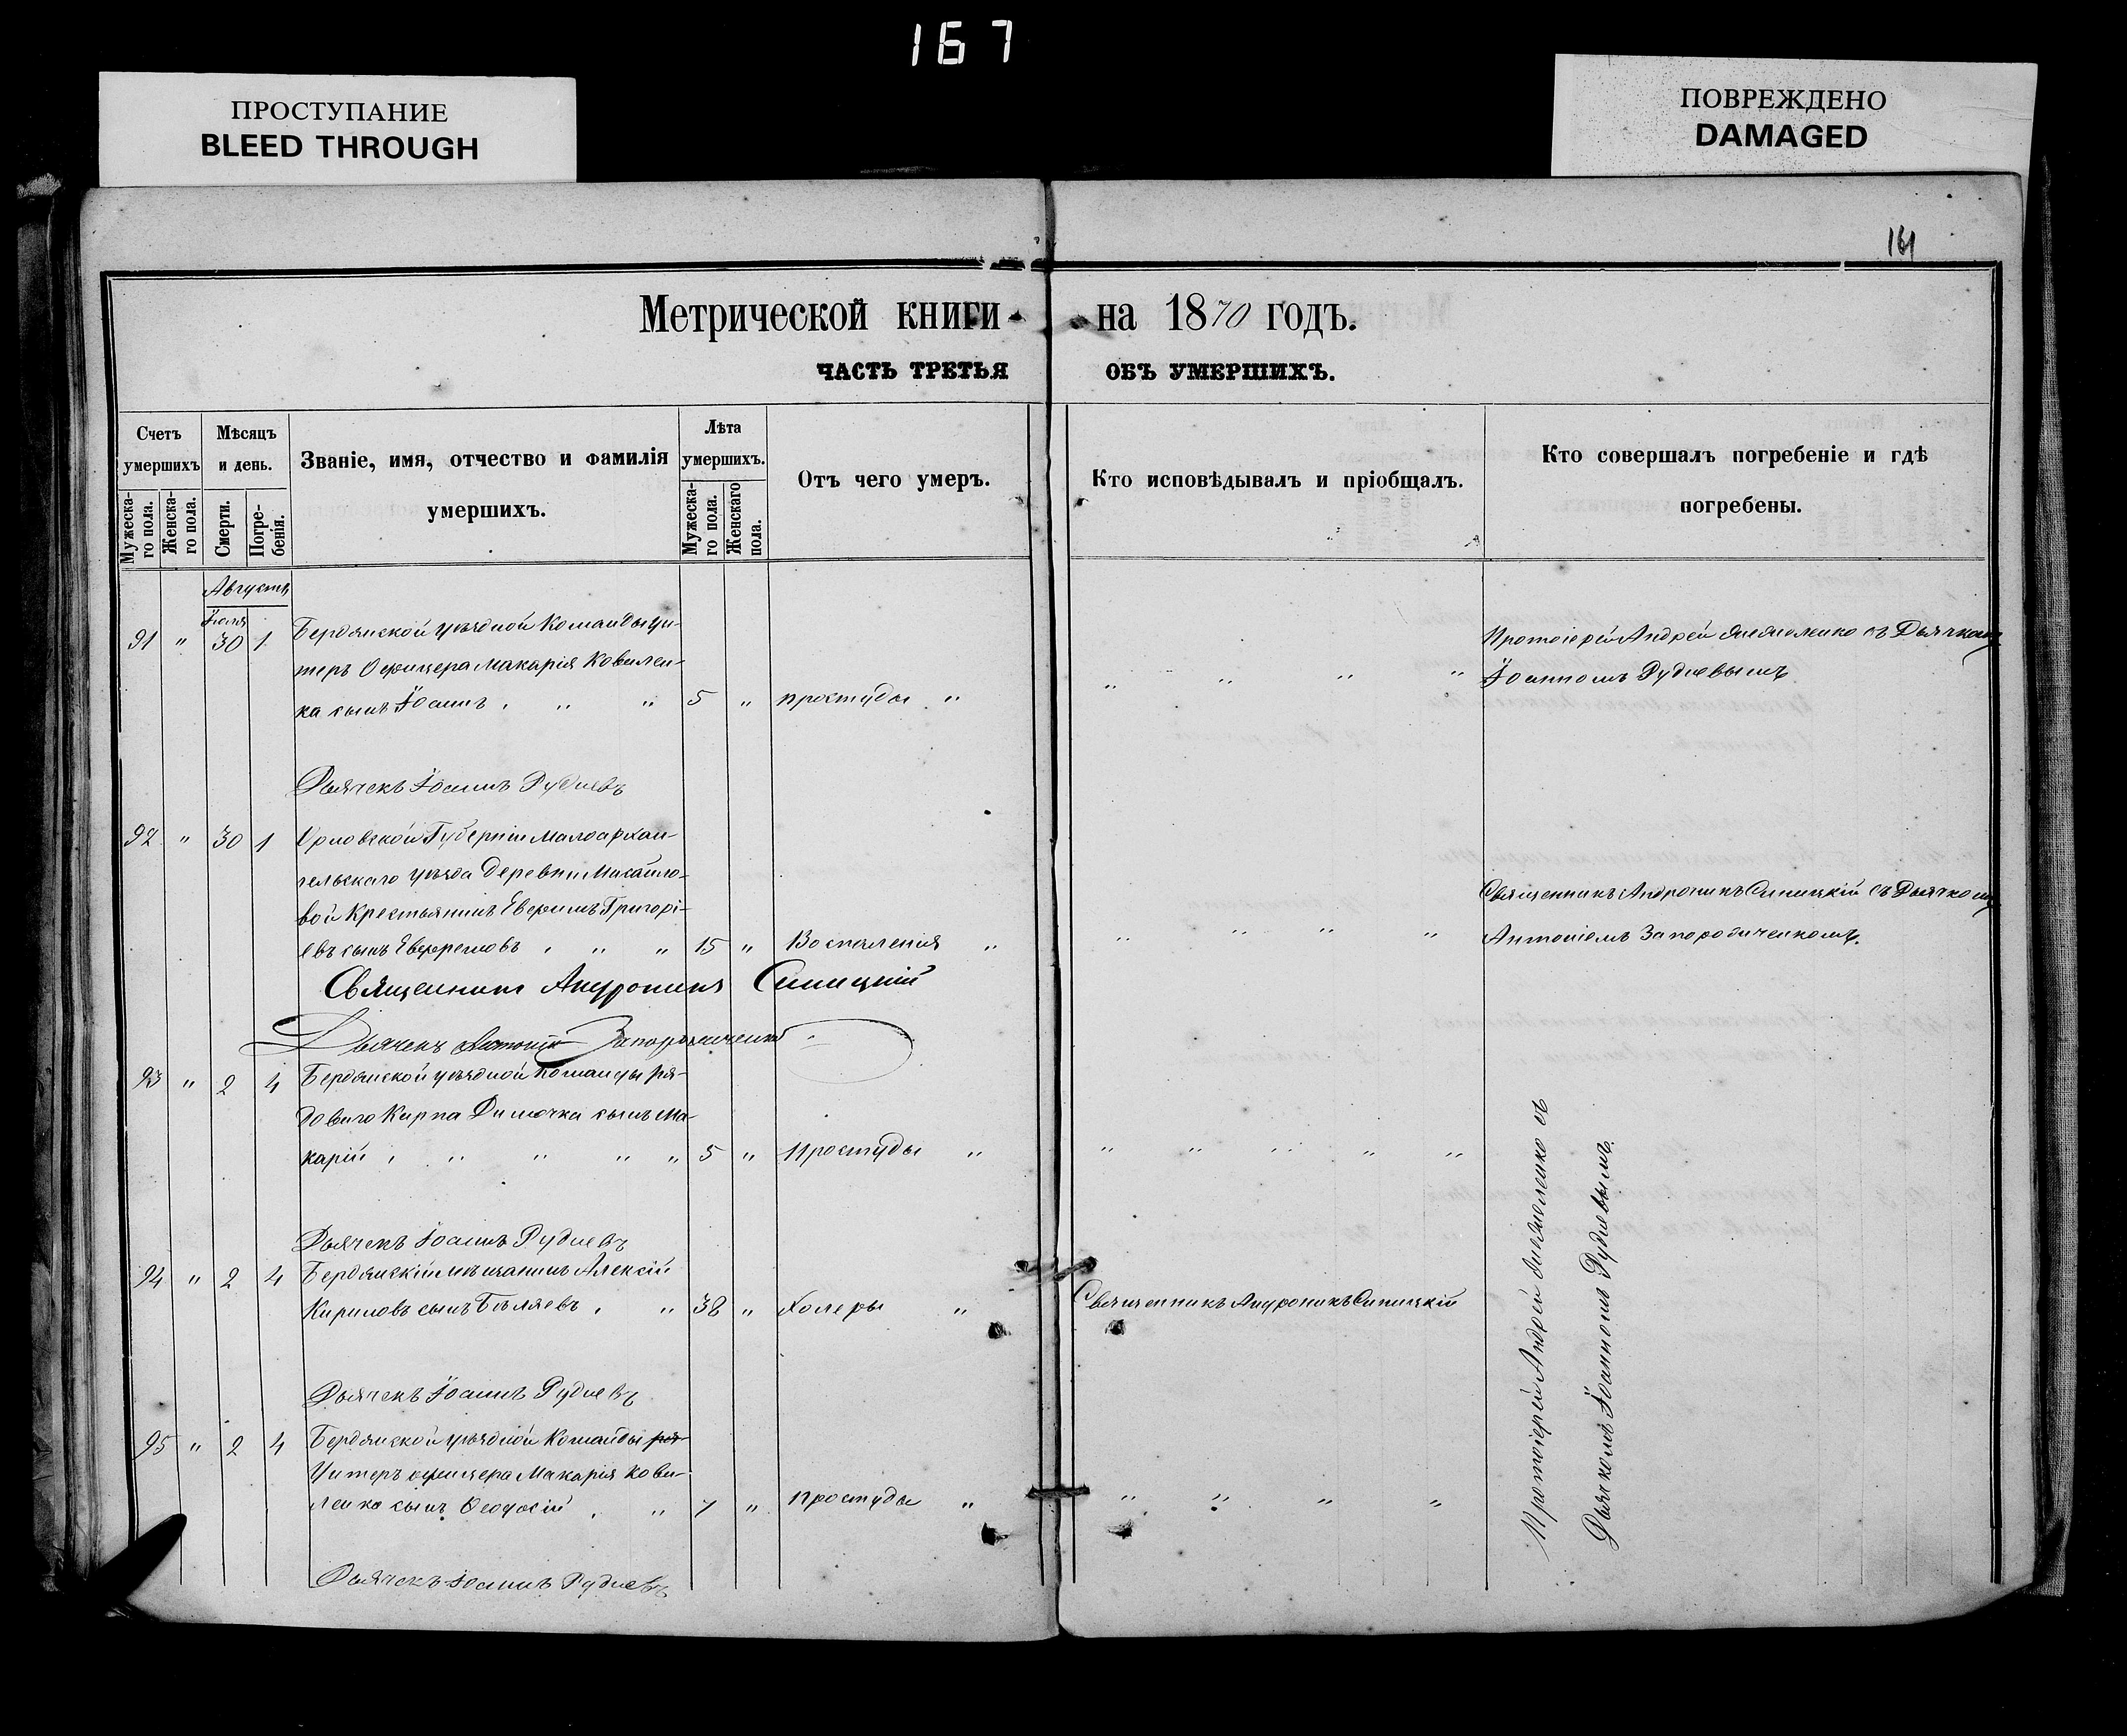 167
ПРОСТУПАНИЕ
BLEED THROUGH
ПОВРЕЖДЕНО
DAMAGED
161
Метрической книги на 1870 годъ.
ЧАСТЬ ТРЕТЬЯ ОБЪ УМЕРШИХЪ.
Счетъ умершихъ
Мужеска-го пола.
Женска-го пола.
Мѣсяцъ и день.
Смерти.
Погре-бенія.
Званіе, имя, отчество и фамилія умершихъ.
Лѣта умершихъ.
Мужеска-го пола.
Женскаго пола.
Отъ чего умеръ.
Кто исповѣдывалъ и пріобщалъ.
Кто совершалъ погребеніе и гдѣ погребены.
Августъ
Іюля
91 " 30 1 Бердянской уѣздной Команды Ун-
теръ Офицера Макарія Ковален-
ка сынъ Іоаннъ , " " 5 " простуды "
" " " "
Протоіерей Андрей съ Дьячкомъ
Іоанномъ Рудневымъ
Дьячекъ Іоаннъ Рудневъ
92 " 30 1 Орловской Губерніи Малоархан-
гельскаго уѣзда деревни Михайло-
вой Крестьянинъ Евфимъ Григорі-
евъ сынъ Евфремовъ , " " 15 " Воспаленія "
" " " "
Священникъ Андроникъ Синицкій съ Дьячкомъ
Антоніемъ Запорожченкомъ.
Священникъ Андроникъ Синицкій
Дьячекъ Антоній Запорожченко
93 " 2 4 Бердянской уѣздной команды ря-
доваго Карпа сынъ Ма-
карій , " " " " 5 " простуды "
" " " " "
Дьячекъ Іоаннъ Рудневъ
94 " 2 4 Бердянскій мѣщанинъ Алексій
Кириловъ сынъ Бѣляевъ , " 38 " Холеры "
Священникъ Андроникъ Синицкій
Дьячекъ Іоаннъ Рудневъ
95 " 2 4 Бердянской уѣздной Команды ря-
Унтеръ офицера Макарія Кова-
ленко сынъ Ѳеодосій , " 7 " простуды "
" " " "
Дьячекъ Іоаннъ Рудневъ
Протоіерей Андрей съ
Дьячкомъ Іоанномъ Рудневымъ.